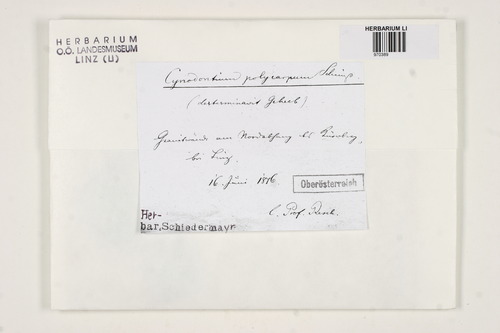 HERBARIUM
O.Ö. LANDESMUSEUM
LINZ (LI)
HERBARIUM LI
Cynodontium polycarpum Schimp
(determinavit Geheeb)
Granitwände am Nordabhang des Kürnberg
bei Linz.
16. Juni
Oberösterreich
l. Prof.
Her-
bar. Schiedermayr